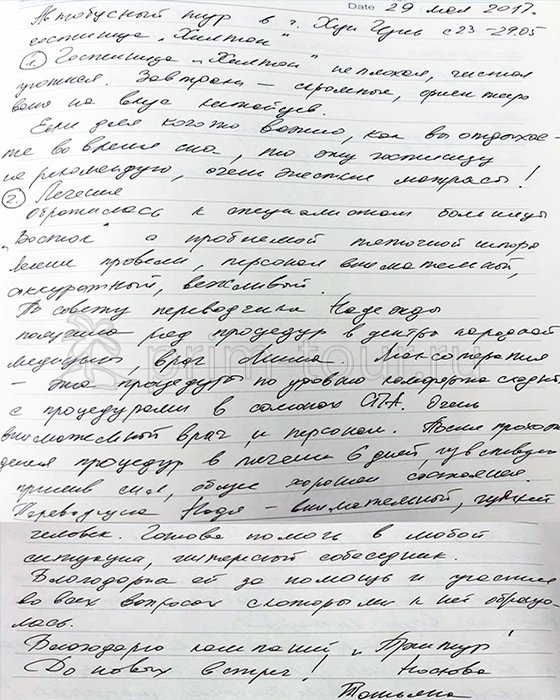 Date 29 мая 2017.
Автобусный тур в г. Хун Чунь с 23-29.05
гостиница „Хилтон"
1. Гостиница „Хилтон" неплохая, чистая
уютная. Завтраки - скромные, ориентиро
ваны на вкус китайцев.
Если для кого то важно, как вы отдыхае-
те во время сна, то эту гостиницу
не рекомендую, очень жесткие матрасы!
2. Лечение
Обратилась к специалистам больницы
„Восток" с проблемой пяточной шпоры
Лечение провели, персонал внимательный,
аккуратный, вежливый.
По совету переводчика Надежды
получила ряд процедур в центре народной
медицины, врач Моксотерапия
- эта процедура по уровню комфорта сходна
с процедурами в салонах СПА. Очень
внимательный врач и персонал. После прохож
дения процедур в течении 6 дней, чувствую
прилив сил, общее хорошее состояние.
Переводчица Надя - внимательный, чуткий
человек. Готова помочь в любой
ситуации, интересный собеседник.
Благодарна ей за помощь и участие
во всех вопросах с которыми к ней обраща
лась.
Благодарю компанию „Прим тур"
До новых встреч! Носкова
Татьяна
prim-tour.ru